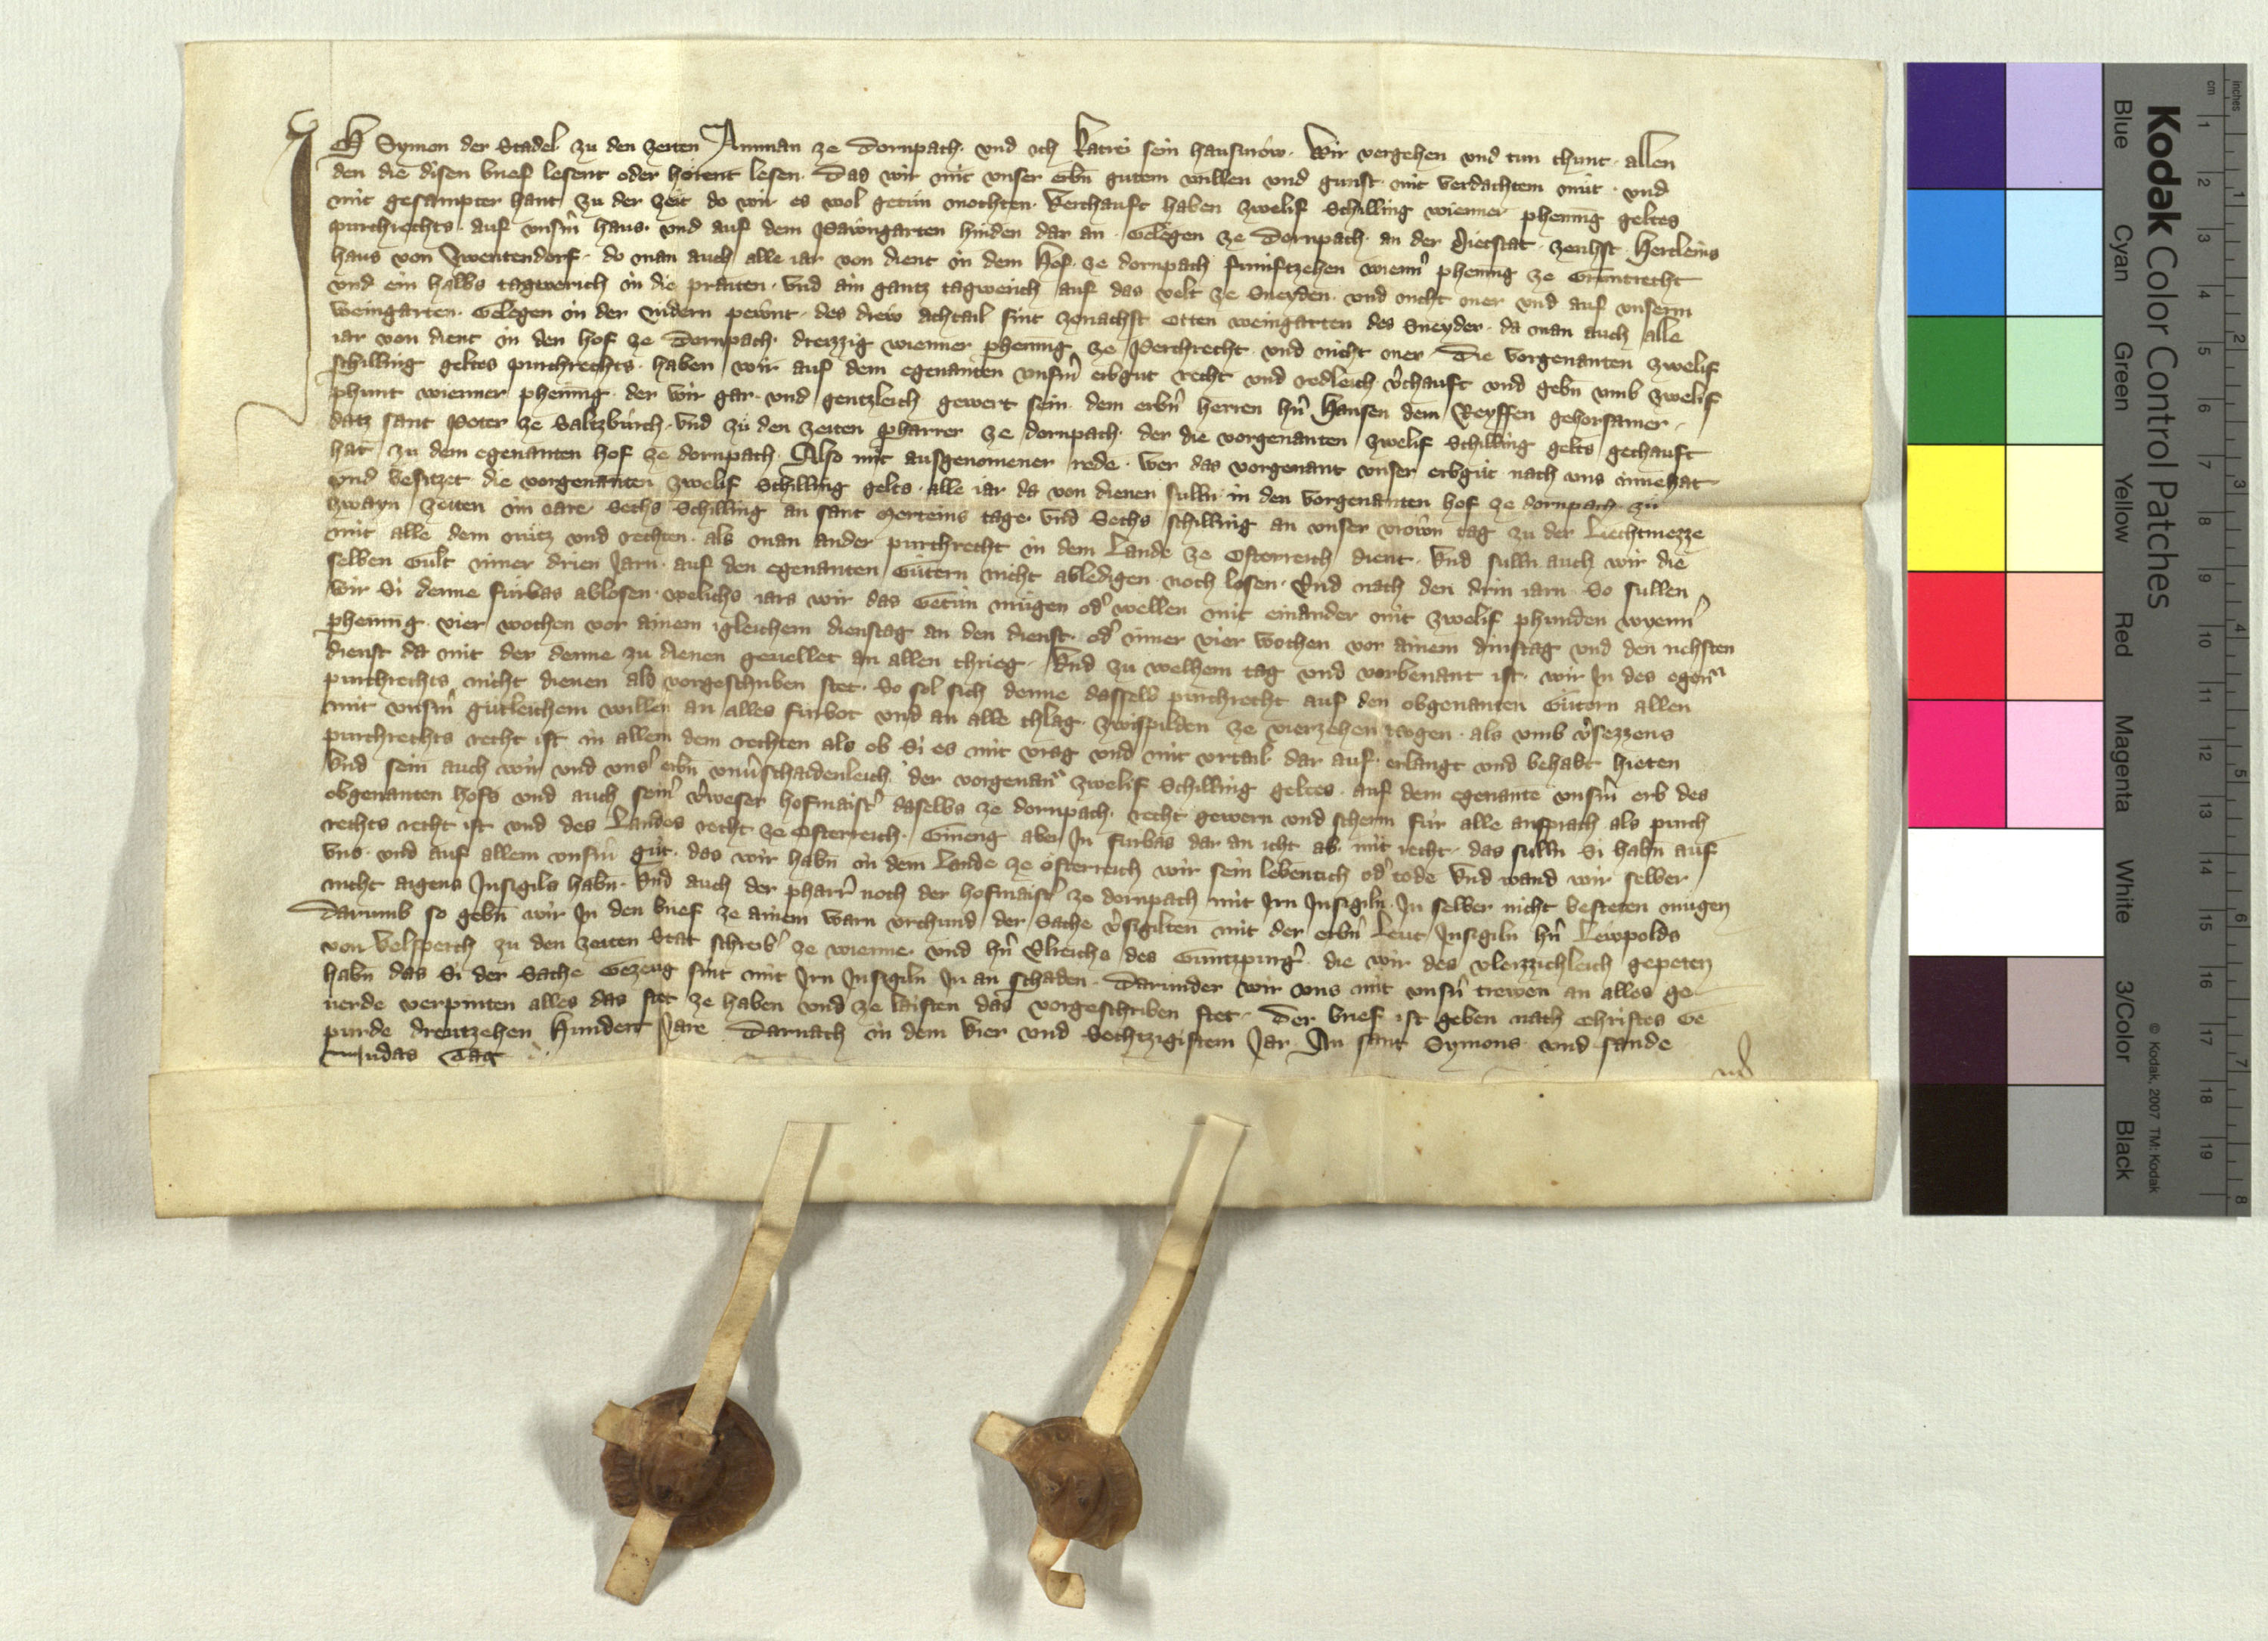 Ich Symon der Stadel zu den zeiten Amman ze Dornpach. vnd ich Katrei sein hausvrow. Wir vergehen vnd tun chunt. allen
den die disen brief lesent oder hörent lesen. Das wir mit vnser erbn gutem willen vnd gunst. mit verdachtem mut. vnd
mit gesampter hant zu der zeit do wir es wol getun mochten. Verchauft haben zwelif Schilling wienner phennig geltes
purchrechts. auf vnserm haus. vnd auf dem Pawngarten hinden dar an. Gelegen ze Dornpach. an der vietstat. zenhst. Hertleins
haus von Zwentendorf. do man auch alle iar von dient in dem Hof. ze dornpach fumftzehen wienner phennig ze Gruntrecht
vnd ein halbs tagwerich in die praiten. vnd ain gantz tagwerich auf das velt ze Sneyden. vnd nicht mer vnd auf vnserm
Weingarten. Gelegen in der nidern pewnt. des drew achtail sint zenachst Otten weingarten des Sneyder. da man auch alle
iar von dient in den hof ze Dornpach. dreizzig wienner phennig ze Perchrecht. vnd nicht mer. Die vorgenanten zwelif
schilling geltes purchrechts. haben wir auf dem egenanten vnserm erbgut recht vnd redleich v'chauft vnd gebn vmb zwelif
phunt wienner phennig. der wir gar. vnd gentzleich gewert sein. dem erbn herren hn Hansen dem Reyffen gehorsamer.
datz sant Peter ze Saltzburch. Vnd zu den zeiten Pharrer ze dornpach. der die vorgenanten zwelif Schilling gelts gechauft
hat zu dem egenanten hof ze dornpach. Also mit ausgenomener rede. wer das vorgenant vnser erbgut nach vns innehat
vnd besitzet die vorgenanten zwelif Schilling gelts. alle iar da von dienen sulln. in den vorgenanten hof ze dornpach. zu
zwayn zeiten im iare Sechs Schilling an sant Merteins tage. Vnd Sechs schilling an vnser vrown tag zu der Liechtmezze
mit alle dem nutz vnd rechten. als man ander purchrecht in dem Lande ze Osterreich dient. Vnd sulln auch wir die
selben Gult inner drien Jarn. auf den egenanten Gutern nicht abledigen. noch losen. Vnd nach den drin iarn. So sullen
wir Si denne furbas ablosen. welichs iars wir das Getun mugen od' wellen mit einander mit zwelif phunden wyenn'
phennig. vier wochen vor ainem igleichem dienstag an den dienst. od' inner vier wochen vor ainem dinstag vnd den nehsten
dienst da mit der denne zu dienen geuellet an allen chrieg. Vnd zu welhem tag vnd vorbenant ist. wir In des egen'n
purchrechts nicht dienen als vorgeschriben stet. So sol sich denne dasselb purchrecht auf den obgenanten Gutern allen
mit vnserm gutleichem willen an alles furbot vnd an alle chlag. zwispilden ze vierzehen tegen. als vmb v'sezzens
purchrechts recht ist in allem dem rechten als ob Si es mit vrag vnd mit vrtail. dar auf. erlangt vnd behabt hieten
Vnd sein auch wir vnd vns' erbn vnu'schaidenleich. der vorgenan'n zwelif Schilling geltes. auf dem egenante vnserm erb des
obgenanten hofs vnd auch sein' v'weser hofmaist' daselbs ze dornpach. recht gewern vnd scherm fur alle ansprach als purch
rechts recht ist vnd des Landes recht ze Osterreich. Gineng aber In furbas dar an icht ab. mit recht. das sulln Si habn auf
vns. vnd auf allem vnserm gut. das wir habn in dem Lande ze Osterreich wir sein lebentich od' tode Vnd wand wir selber
nicht aigens Insigils habn. Vnd auch der pharr' noch der hofmaist' ze dornpach mit Irn Insigiln. In selber nicht besteten mugen
Darumb so gebn wir In den brief ze ainem warn vrchund der Sache v'sigilten mit der erbn Leut Insigiln hn Lewpolds
von Velsperch zu den zeiten Stat schreib' ze wienne. vnd hn Vlreichs des Guntzpurg'. die wir des vleizzichleich gepeten
habn das Si der Sache Gezeug sint mit Irn Insigiln In an schaden. Darunder wir vns mit vnsn trewen an alles ge
uerde verpinten alles das stet ze haben vnd ze laisten das vorgeschriben stet. Der brief ist geben nach Christes Ge
purde dreutzehen Hundert Jare Darnach in dem Vier vnd Sechtzigistem Jar An sant Symons vnd sande
Judas Tag
Kodak Color Control Patches
Blue Cyan Green Yellow Red Magenta White 3/Color Black
© Kodak, 2007 TM: Kodak
cm 1 2 3 4 5 6 7 8 9 10 11 12 13 14 15 16 17 18 19
inches 1 2 3 4 5 6 7 8